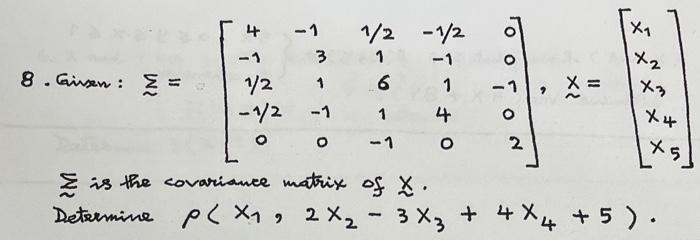 8. Given: Σ = [ 4 -1 1/2 -1/2 0 ; -1 3 1 -1 0 ; 1/2 1 6 1 -1 ; -1/2 -1 1 4 0 ; 0 0 -1 0 2 ], X = [ X1 ; X2 ; X3 ; X4 ; X5 ]
Σ is the covariance matrix of X.
Determine ρ( X1, 2X2 - 3X3 + 4X4 + 5 ).